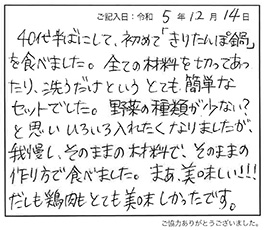 ご記入日：令和 5年 12月 14日
40代半ばにして、初めて「きりたんぽ鍋」
を食べました。全ての材料を切ってあっ
たり、洗うだけという とても 簡単な
セットでした。野菜の種類が少ない?
と思い いろいろ入れたくなりましたが、
我慢し、そのままの材料で、そのままの
作り方で食べました。まあ、美味しい!!!
だしも鶏肉もとても美味しかったです。
ご協力ありがとうございました。